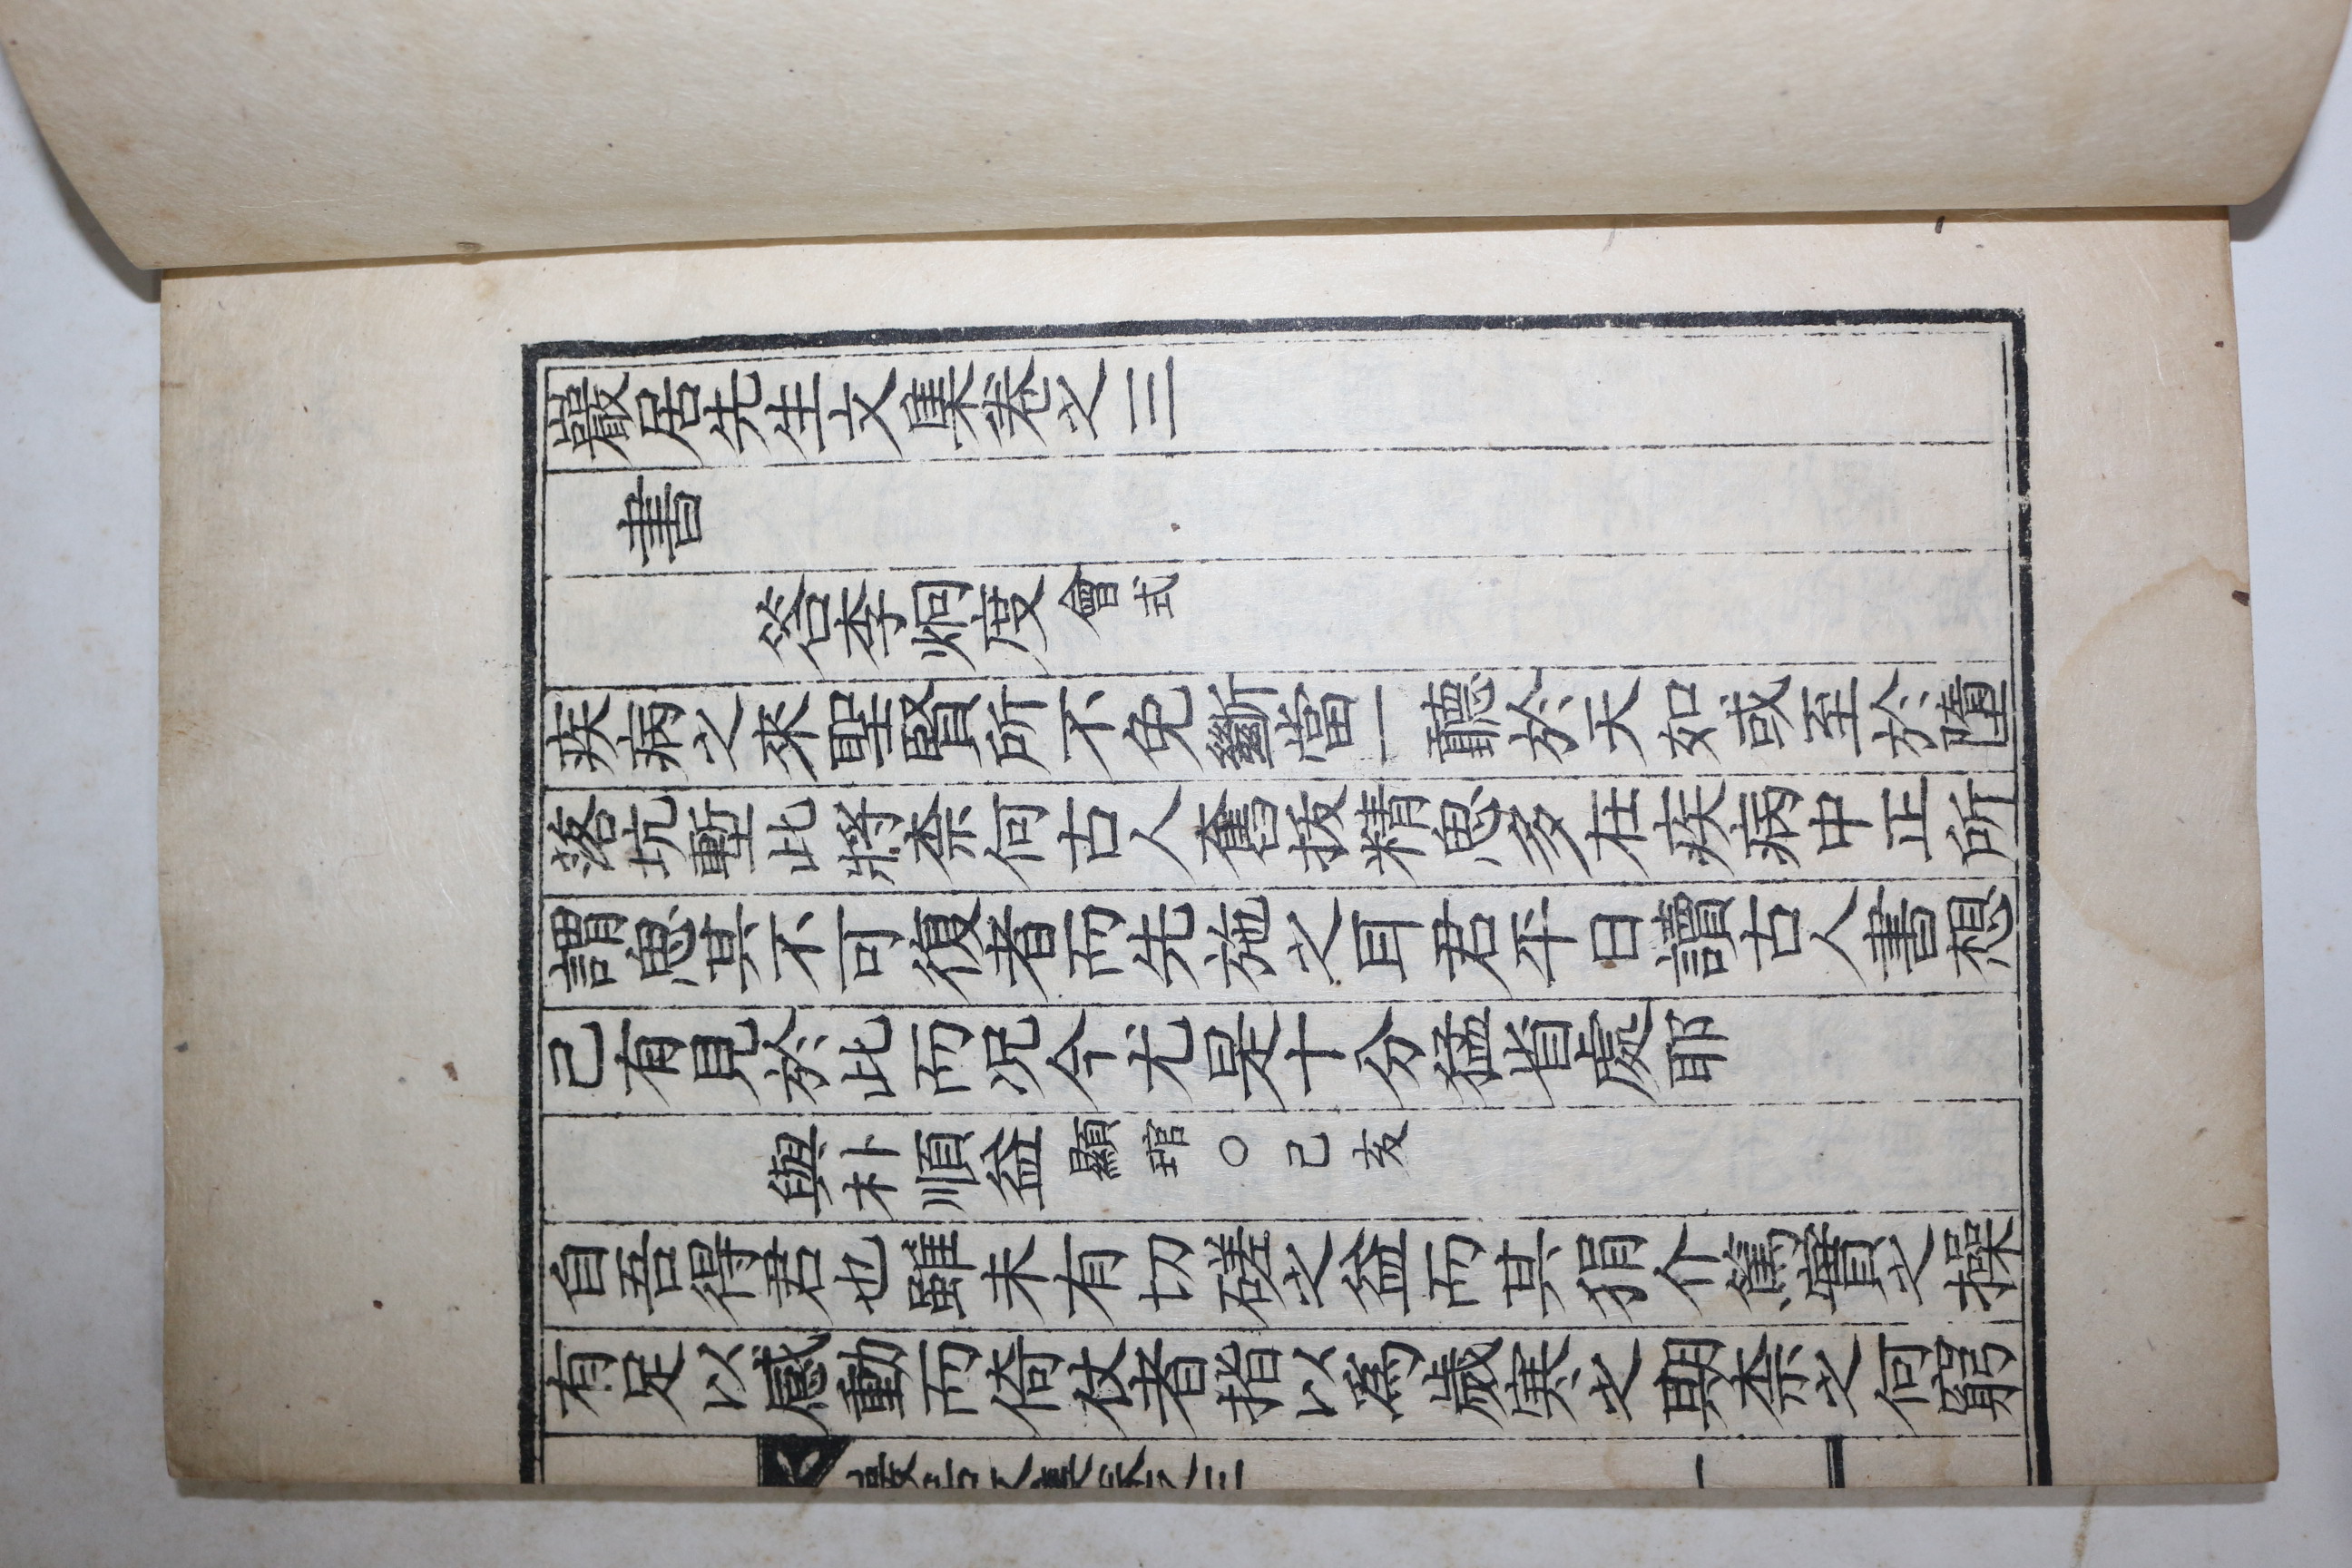 巖居先生文集卷之三
書
答李炯度 會式
疾病之來聖賢所不免斷當一聽於天如或至於墮
落坑塹此將柰何古人奮拔精思多在疾病中正所
謂思其不可復者而先施之耳君平日讀古人書想
己有見於此而况今尤是十分猛省處耶
與朴順益 顯琯○己亥
自吾得君也雖未有切磋之益而其狷介篤實之操
有足以感動而倚仗者指以爲歲寒之期柰之何窮